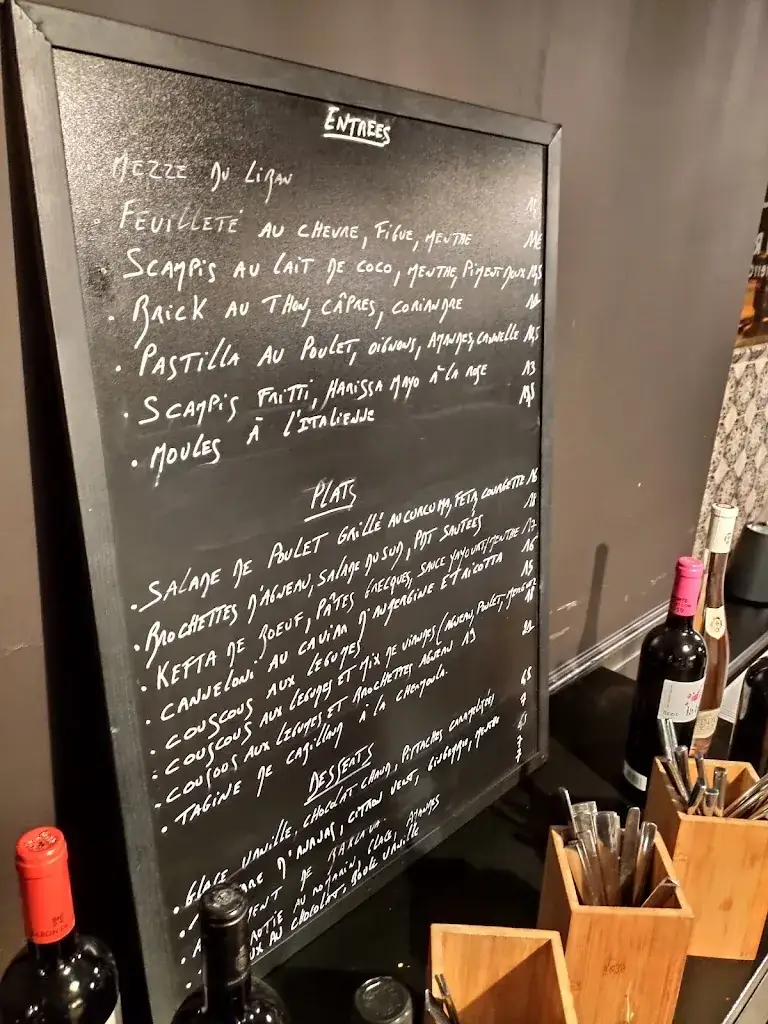 ENTREES
MEZZE DU LIBAN
FEUILLETÉ AU CHEVRE, FIGUE, MENTHE
SCAMPIS AU LAIT DE COCO, MENTHE, PIMENT DOUX
BRICK AU THON, CÂPRES, CORIANDRE
PASTILLA AU POULET, OIGNONS, AMANDES, CANNELLE
SCAMPIS FRITTI, HARISSA MAYO À LA ROSE 13
MOULES À L'ITALIENNE
PLATS
SALADE DE POULET GRILLÉ AU CURCUMA, FETA, COURGETTE 16
BROCHETTES D'AGNEAU, SALADE DU SUD, PDT SAUTÉES 18
KEFTA DE BOEUF, PÂTES GRECQUES, SAUCE YAYOURT/MENTHE 17
CANNELONI AU CAVIAR D'AUBERGINE ET RICOTTA 16
COUSCOUS AUX LEGUMES 15
COUSCOUS AUX LEGUMES ET MIX DE VIANDES (AGNEAU, POULET, MERGUEZ 18
COUSOUS AUX LEGUMES ET BROCHETTES AGNEAU 19
TAGINE DE CABILLAUD À LA CHERMOULA 22
DESSERTS
GLACE VANILLE, CHOCOLAT CHAUD, PISTACHES CARAMELISÉES
D'ANANAS, CITRON VERT, GINGEMBRE, MENTHE 7
DE BAKLAVA
AU ROMARIN, GLACE AMANDES 7
AU CHOCOLAT, BOULE VANILLE 7